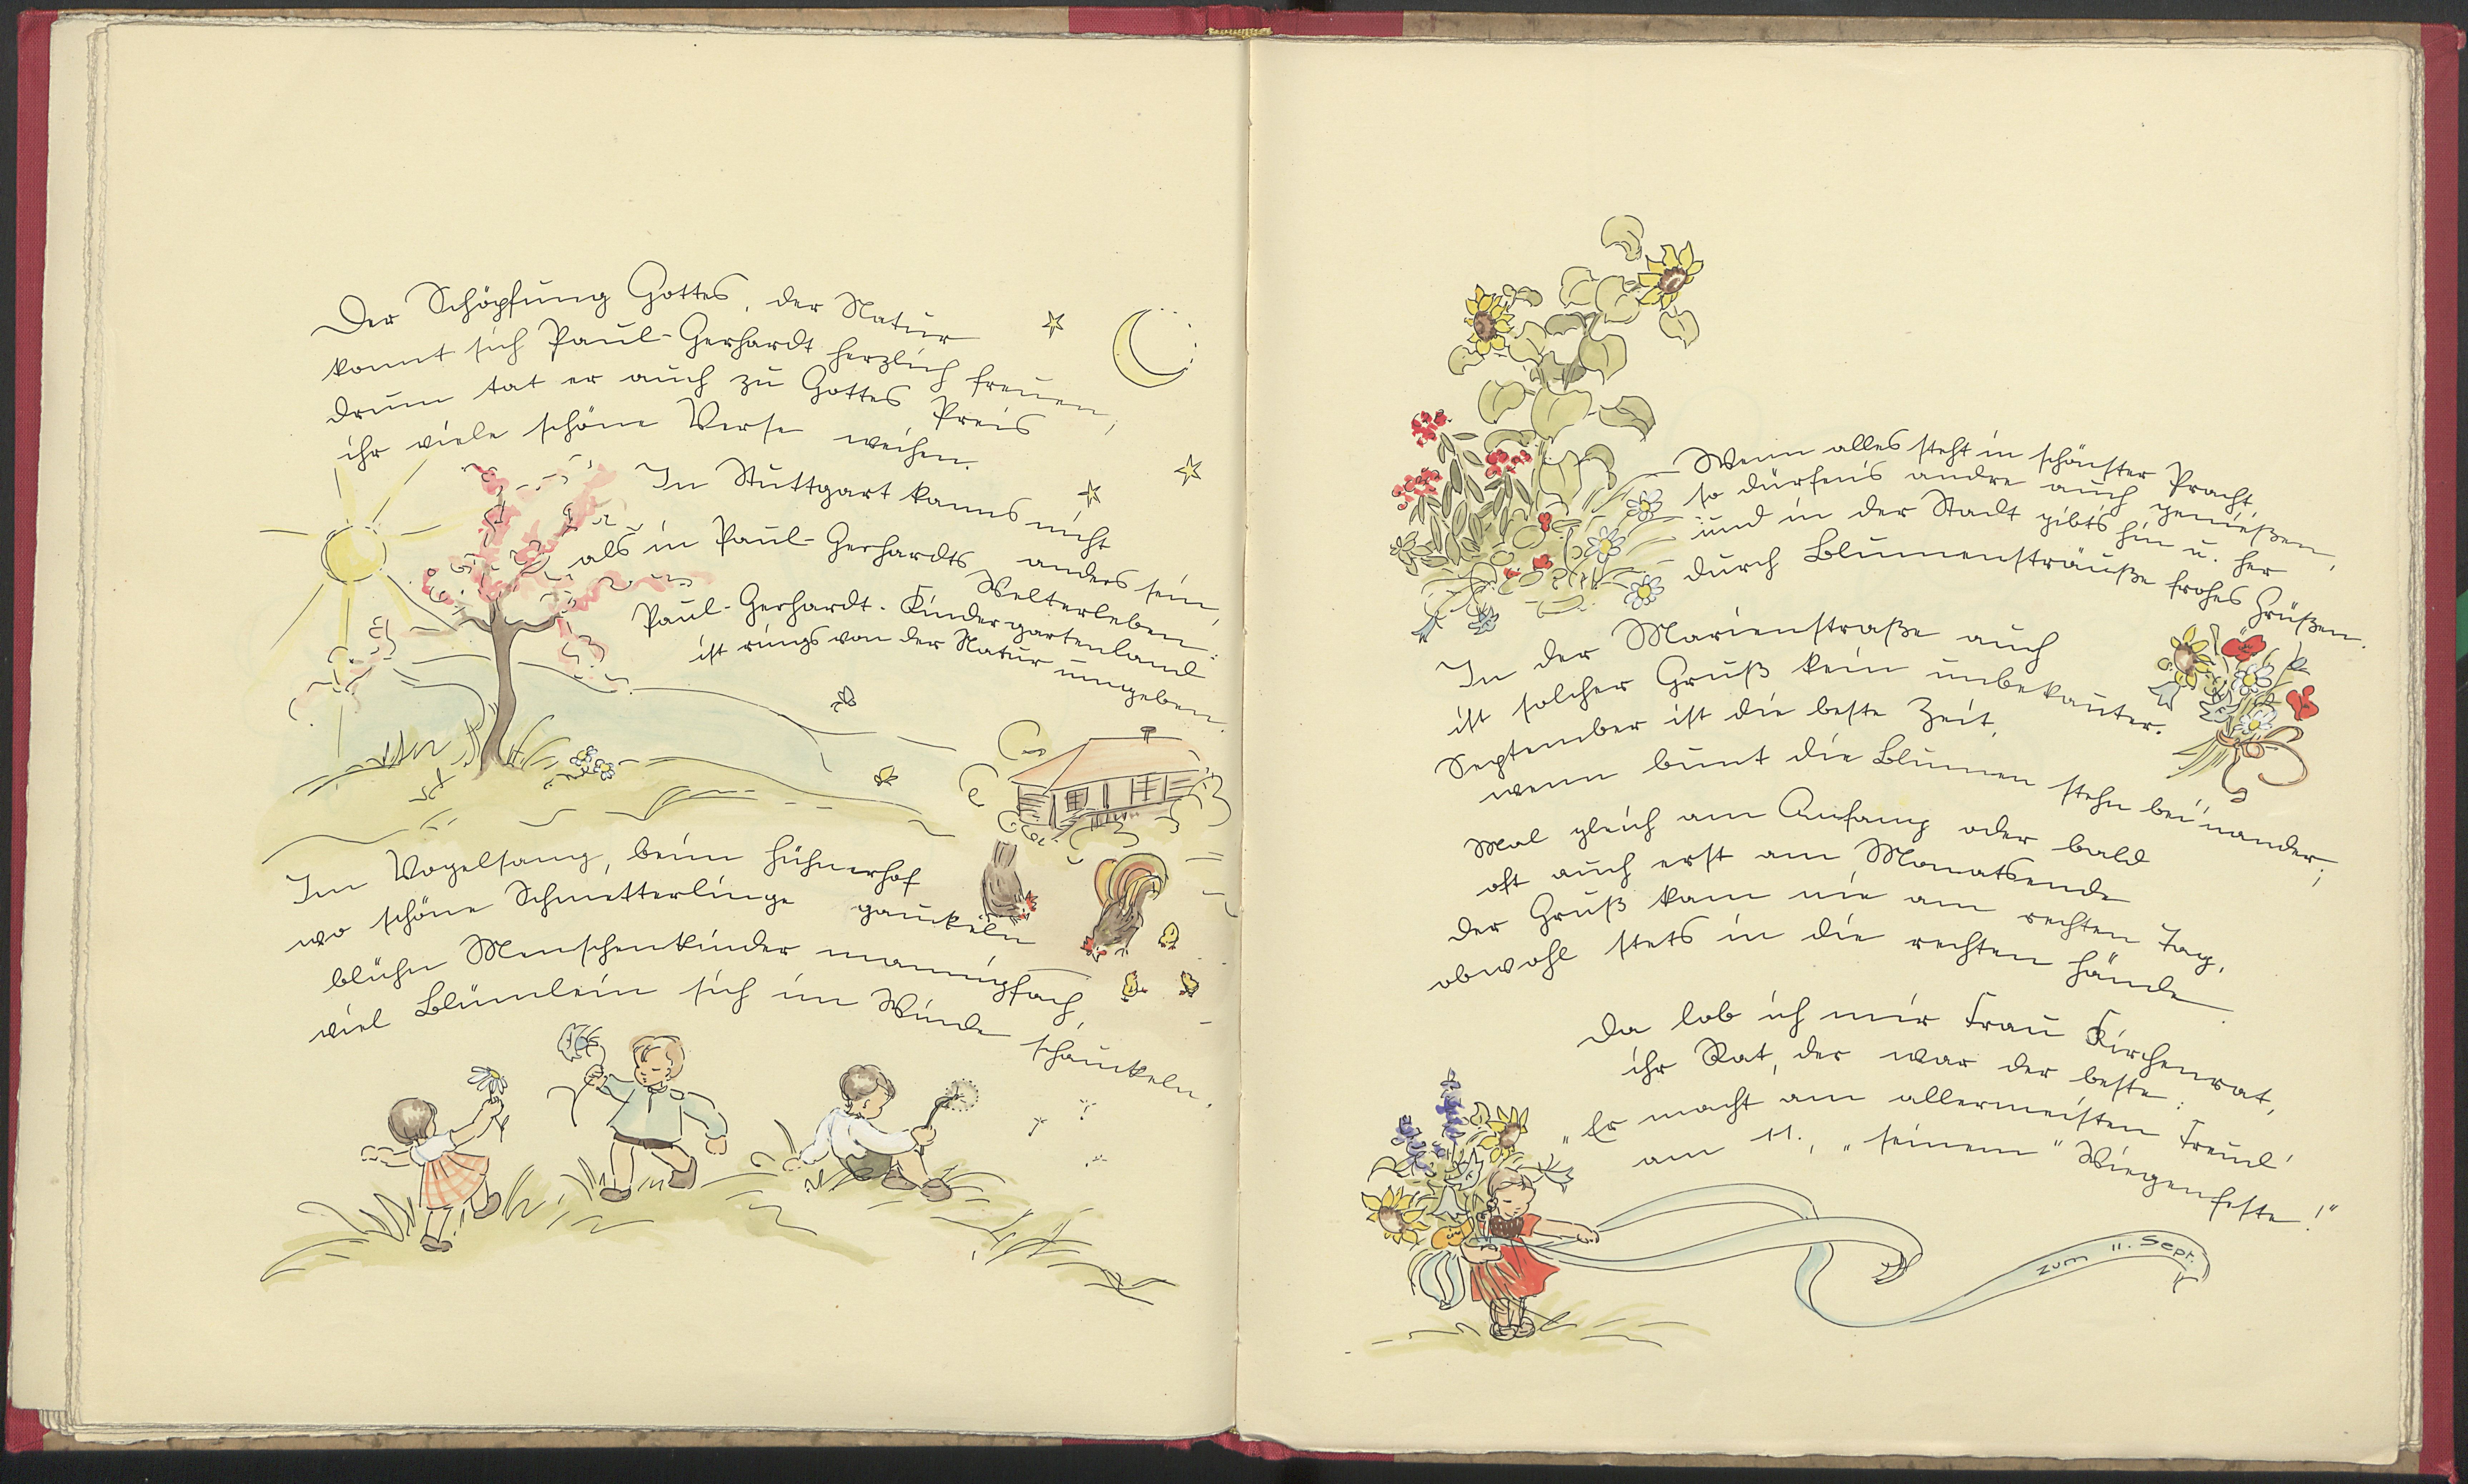 Der Schöpfung Gottes, der Natur
konnt sich Paul-Gerhardt herzlich freuen,
drum tat er auch zu Gottes Preis
ihr viele schöne Verse weihen.
In Stuttgart kanns nicht anders sein,
als in Paul-Gerhardts Welterleben:
Paul-Gerhardt-Kindergartenland
ist rings von der Natur umgeben.
Im Vogelsang, beim Hühnerhof
wo schöne Schmetterlinge gaukeln
blühn Menschenkinder mannigfach,
viel Blümlein sich im Winde schaukeln.
Wenn alles steht in schönster Pracht,
so dürfen's andre auch genießen,
und in der Stadt gibts hin u. her
durch Blumensträuße frohes Grüßen.
In der Marienstraße auch
ist solcher Gruß kein unbekannter.
September ist die beste Zeit,
wenn bunt die Blumen stehn bei'nander;
Mal gleich am Anfang oder bald
oft auch erst am Monatsende
der Gruß kam nie am rechten Tag,
obwohl stets in die rechten Hände.
Da lob ich mir Frau Kirchenrat,
ihr Rat, der war der beste:
„Er macht am allermeisten Freud'
am 11., „seinem" Wiegenfeste!"
zum 11. Sept.